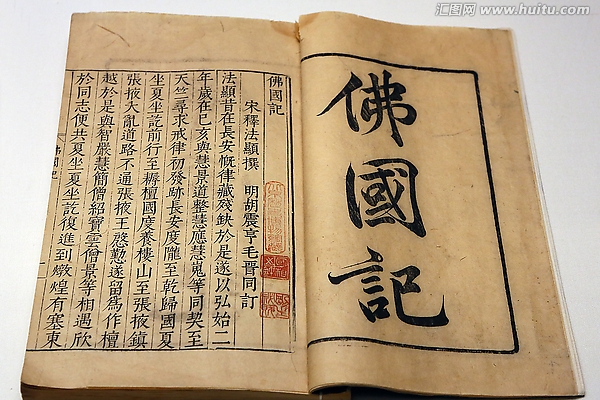 汇图网 www.huitu.com
佛國記
佛國記
宋釋法顯撰　明胡震亨毛晉同訂
法顯昔在長安慨律藏殘缺於是遂以弘始二
年歲在己亥與慧景道整慧應慧嵬等同契至
天竺尋求戒律初發跡長安度隴至乾歸國夏
坐夏坐訖前行至耨檀國度養樓山至張掖鎮
張掖大亂道路不通張掖王慇懃遂留為作檀
越於是與智嚴慧簡僧紹寶雲僧景等相遇欣
於同志便共夏坐夏坐訖復進到燉煌有塞東
佛國記